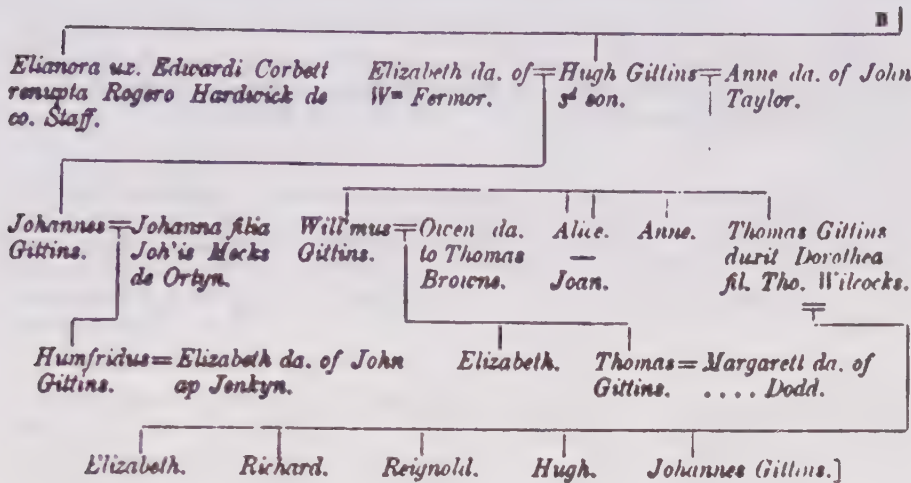 B
Elianora ux. Edwardi Corbett
renupta Rogero Hardwick de
co. Staff.
Elizabeth da. of
Wm Fermor.
Hugh Gittins
3d son.
Anne da. of John
Taylor.
Johannes
Gittins.
Johanna filia
Joh'is Mecks
de Ortyn.
Will'mus
Gittins.
Owen da.
to Thomas
Browne.
Alice.
—
Joan.
Anne.
Thomas Gittins
duxit Dorothea
fil. Tho. Wilcocks.
Humfridus = Elizabeth da. of John
Gittins. ap Jenkyn.
Elizabeth.
Thomas = Margarett da. of
Gittins. .... Dodd.
Elizabeth. Richard. Reignold. Hugh. Johannes Gittins.]